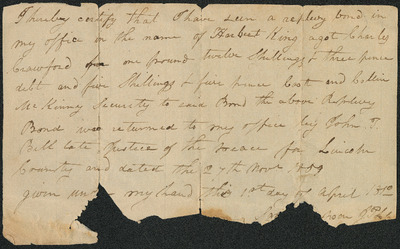 I hereby certify that I have seen a replevy bond in
my office in the name of Herbert King agst Charles
Crawford one pound twelve Shillings & three pence
debt and five Shillings & five pence Cost and Collin
McKinney Security to said Bond the above Replevy
Bond was returned to my office by John T.
Bell late Justice of the peace for Lincoln
County and dated the 27th Novr
given under my hand this 1st day of April 1810